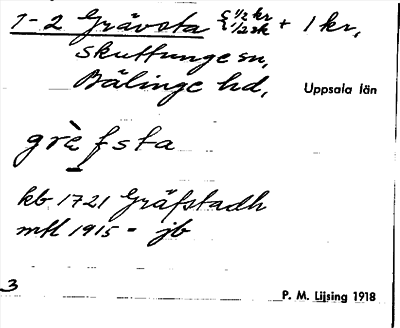 1-2 Grävsta { 1/2 kr { 1/2 sk + 1 kr,
Skuttunge sn,
Bälinge hd, Uppsala län
grèfsta
kb 1721 Gräfstadh
mtl 1915 = jb
3 P. M. Lijsing 1918